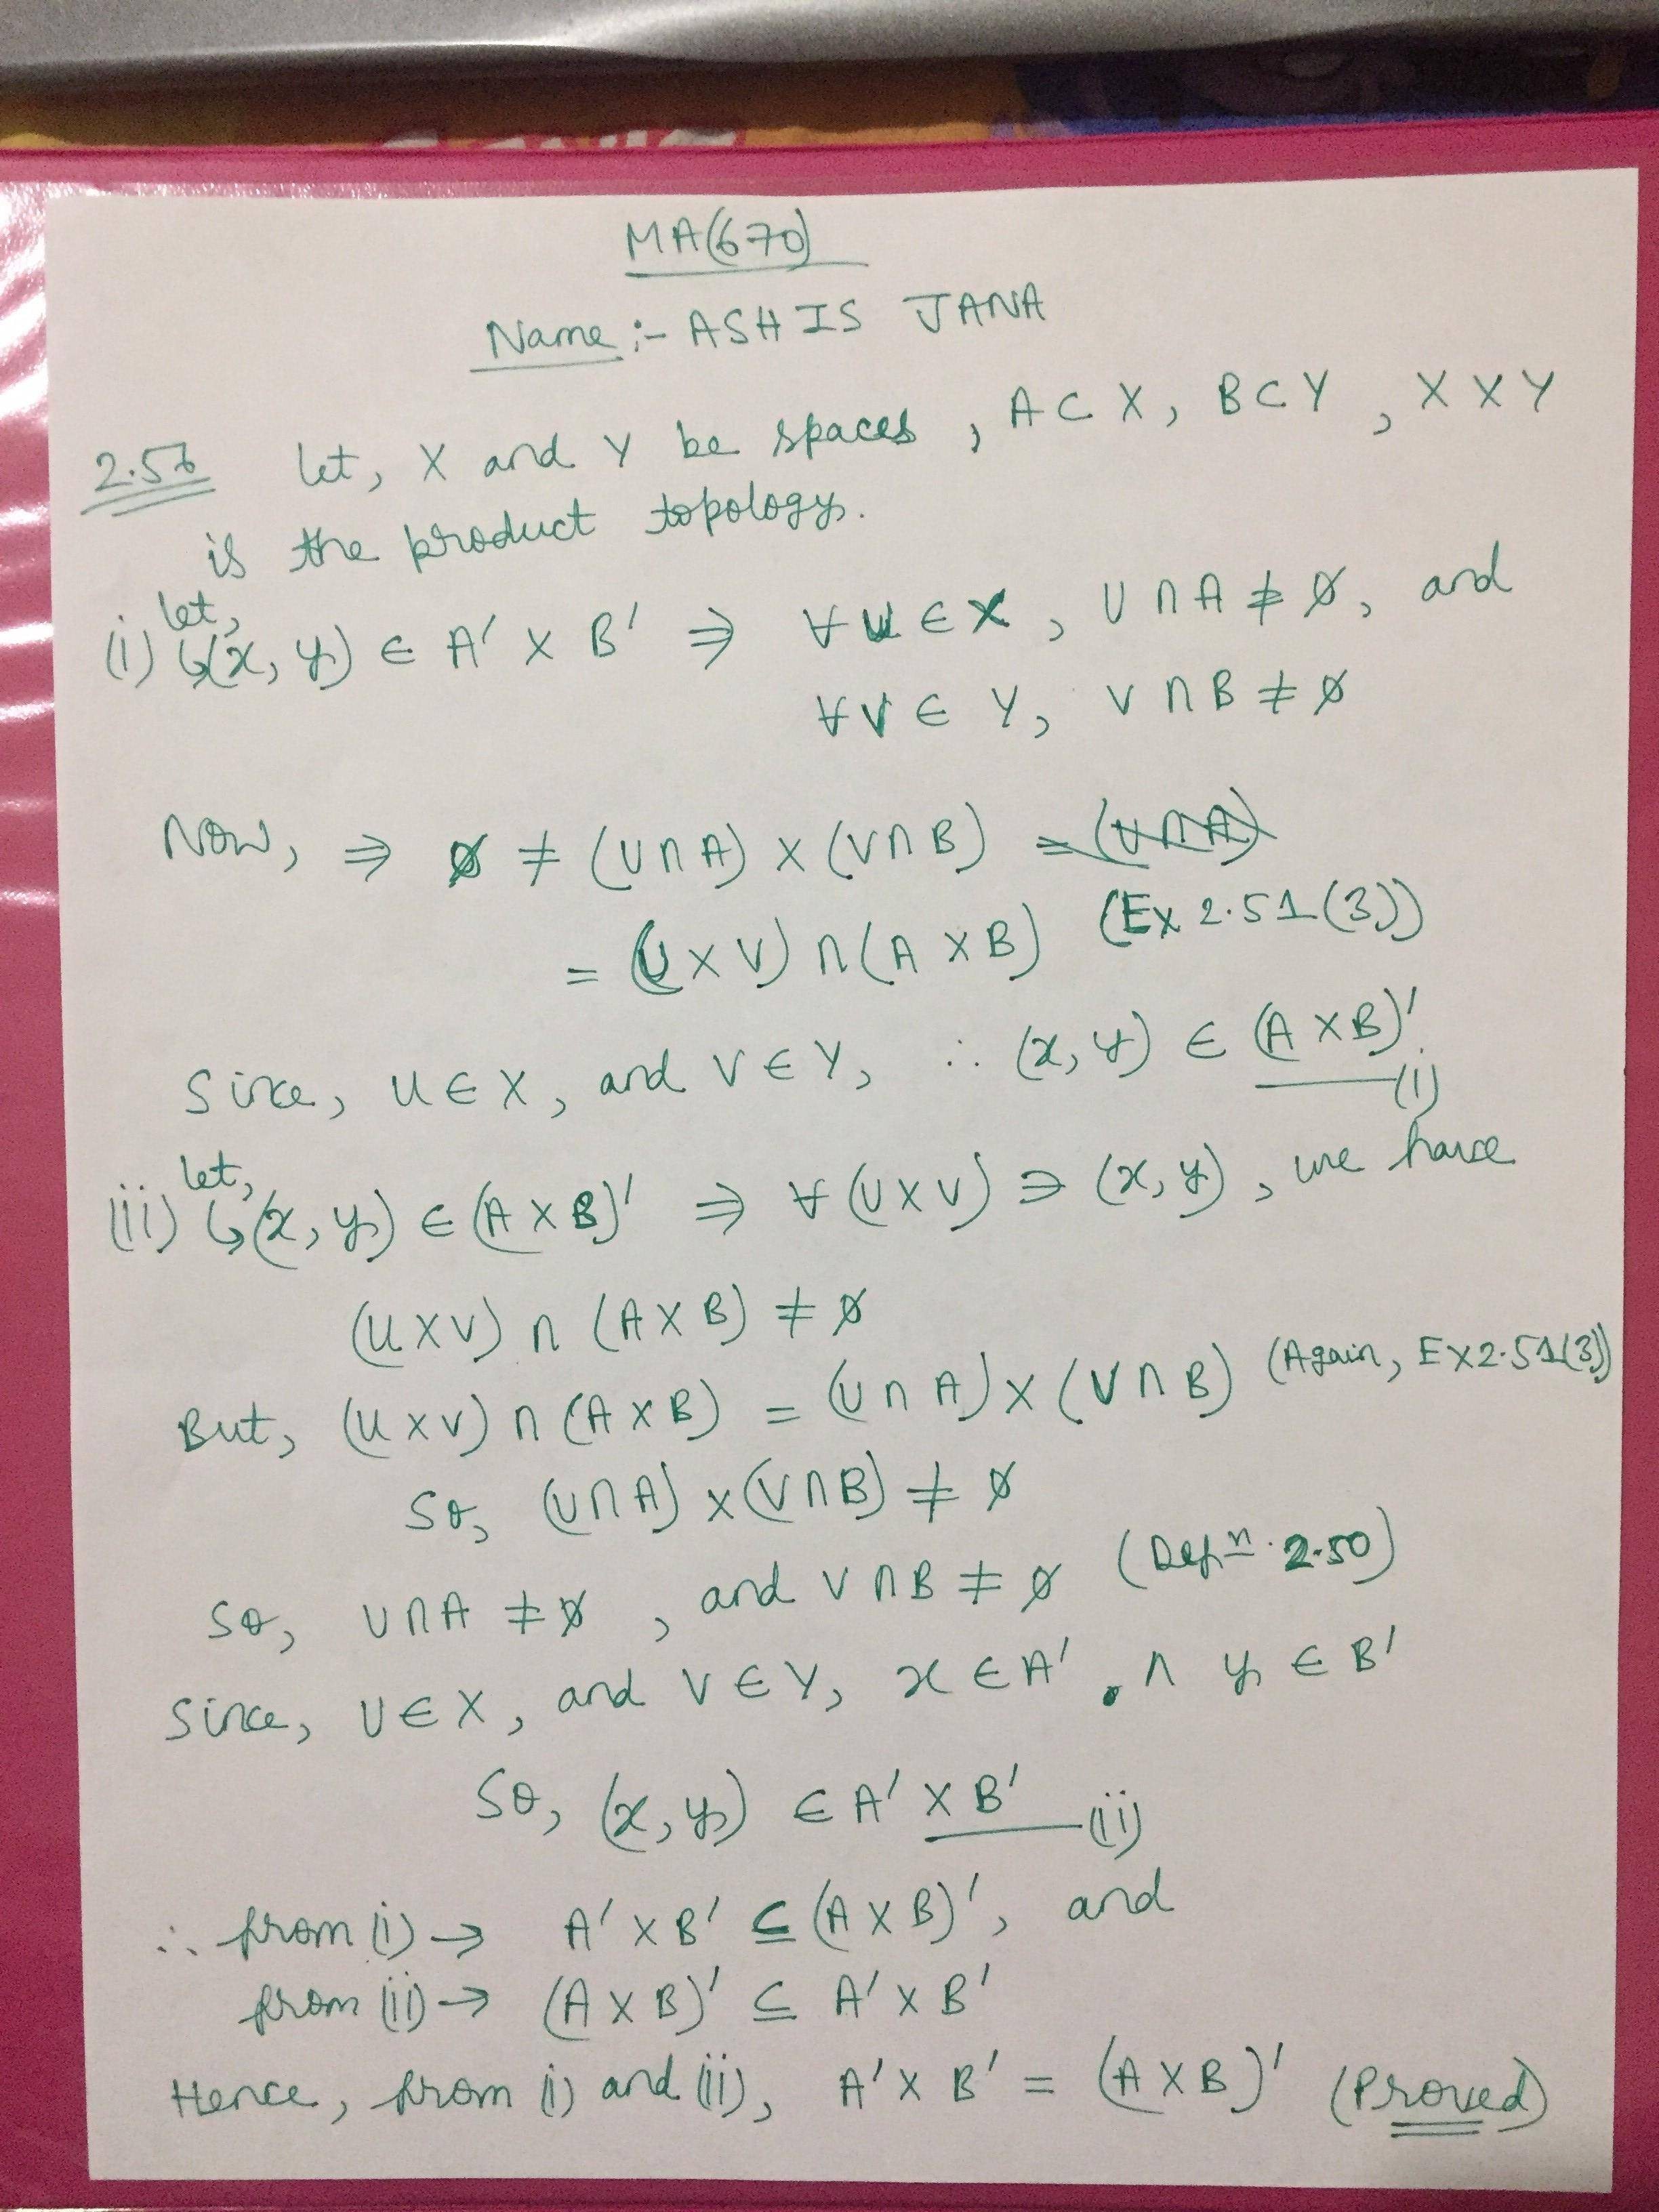 MA(670)
Name :- ASHIS JANA
2.56 let, X and Y be spaces, A ⊂ X, B ⊂ Y, X × Y
is the product topology.
(i) let, (x, y) ∈ A' × B' ⇒ ∀ U ∈ X, U ∩ A ≠ ∅, and
∀ V ∈ Y, V ∩ B ≠ ∅
Now, ⇒ ∅ ≠ (U ∩ A) × (V ∩ B) = (U ∩ A)
= (U × V) ∩ (A × B) (Ex 2.51(3))
Since, U ∈ X, and V ∈ Y, ∴ (x, y) ∈ (A × B)' —(i)
(ii) let, (x, y) ∈ (A × B)' ⇒ ∀ (U × V) ∋ (x, y), we have
(U × V) ∩ (A × B) ≠ ∅
But, (U × V) ∩ (A × B) = (U ∩ A) × (V ∩ B) (Again, EX 2.51(3))
So, (U ∩ A) × (V ∩ B) ≠ ∅
So, U ∩ A ≠ ∅, and V ∩ B ≠ ∅ (Defn. 2.50)
Since, U ∈ X, and V ∈ Y, x ∈ A' ∧ y ∈ B'
So, (x, y) ∈ A' × B' —(ii)
∴ from (i) → A' × B' ⊆ (A × B)', and
from (ii) → (A × B)' ⊆ A' × B'
Hence, from (i) and (ii), A' × B' = (A × B)' (Proved)